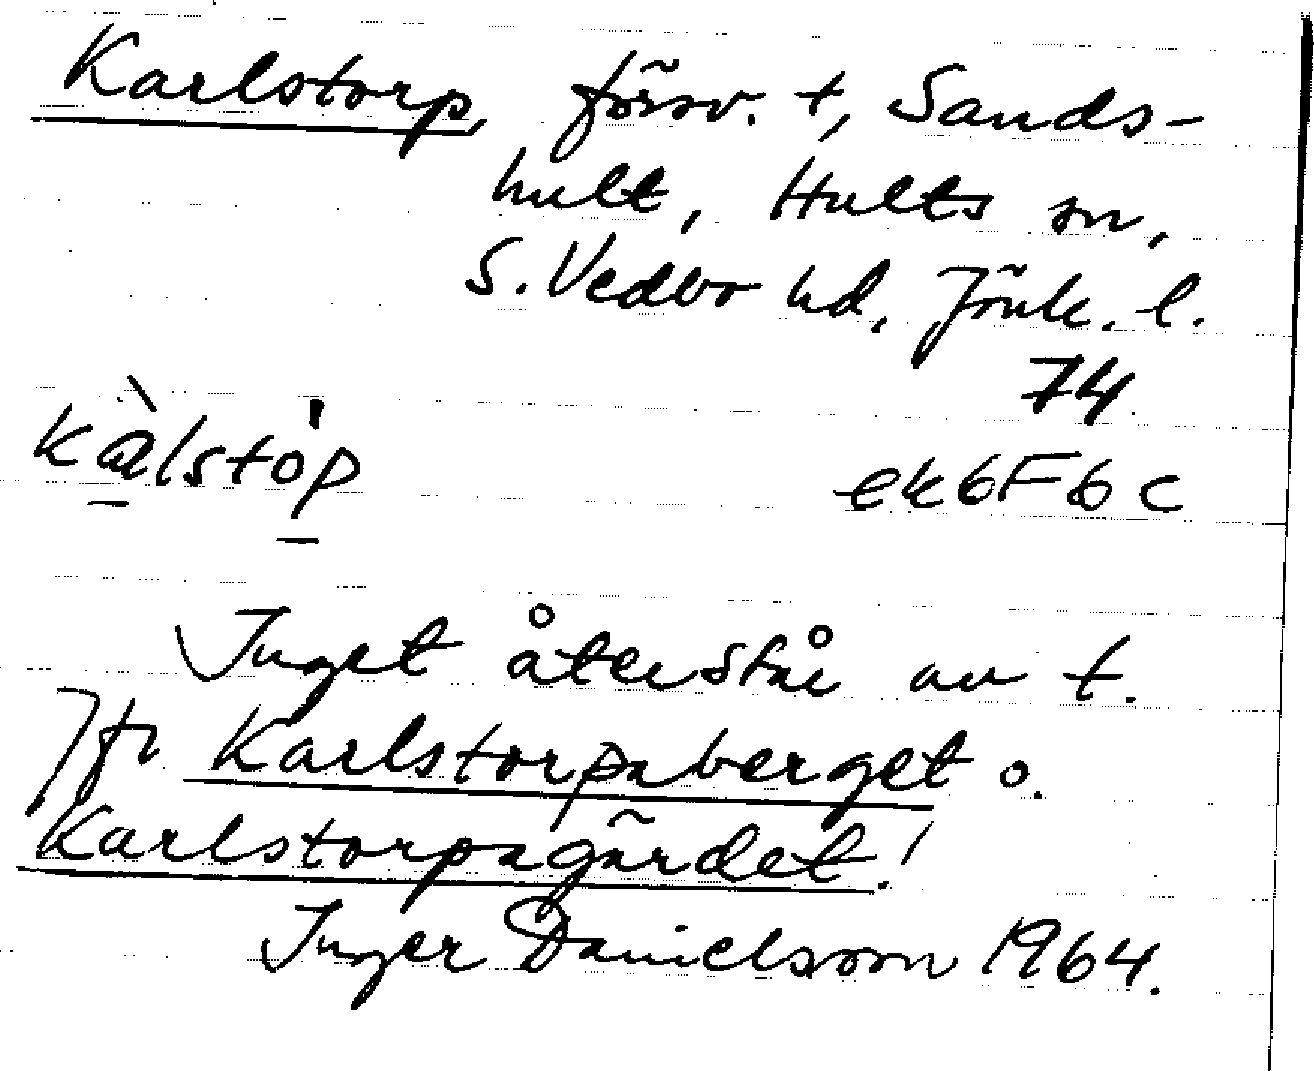 Karlstorp, försv. t, Sands-
hult, Hults sn,
S. Vedbo hd, Jönk. l.
74
kàlstòp ek6F6c
Inget återstår av t.
Jfr Karlstorpaberget o.
Karlstorpagärdet!
Inger Danielsson 1964.